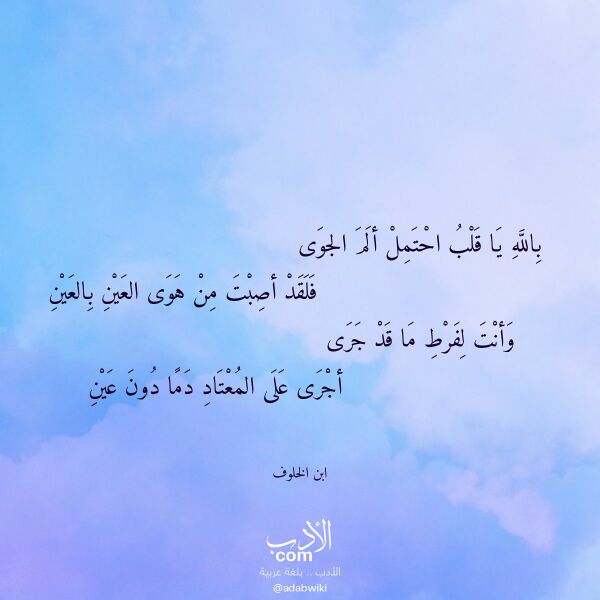 بِاللَّهِ يَا قَلْبُ احْتَمِلْ أَلَمَ الجوَى
فَلَقَدْ أصِبْتَ مِنْ هَوَى العَيْنِ بِالعَيْنِ
وَأنْتَ لِفَرْطِ مَا قَدْ جَرَى
أجْرَى عَلَى المُعْتَادِ دَمًا دُونَ عَيْنِ
ابن الخلوف
الأدب
com
الأدب .. بلغة عربية
@adabwiki